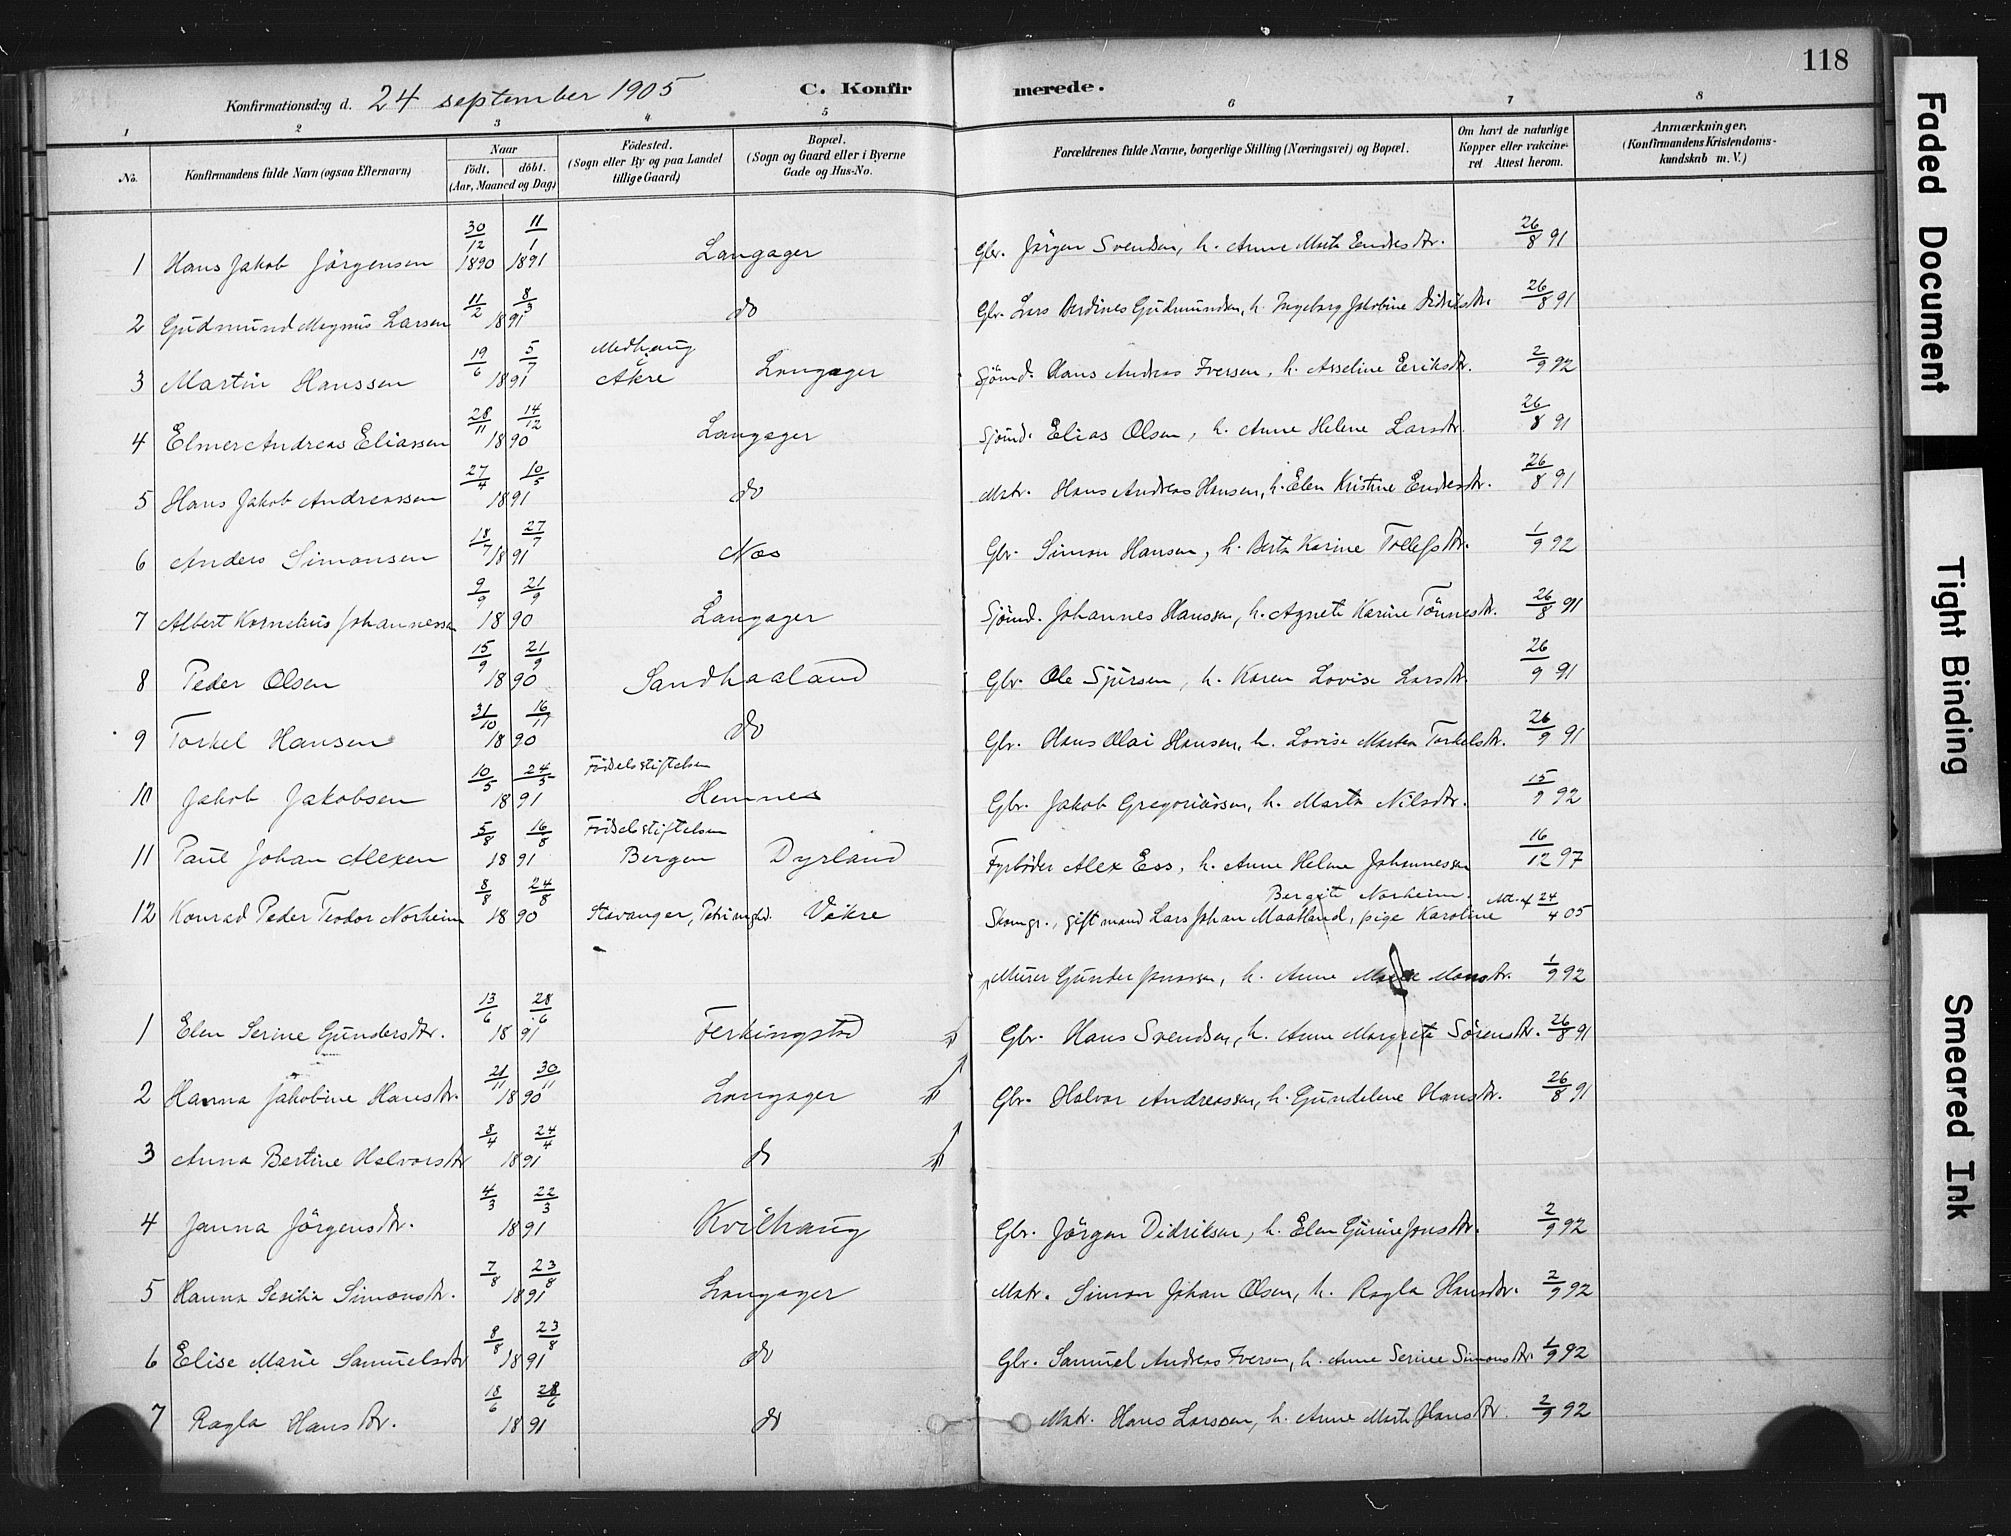 118
Konfirmationsdag d. 24 september 1905 C. Konfirmerede.
1 2 3 4 5 6 7 8
No. Konfirmandens fulde Navn (ogsaa Efternavn) Naar født. døbt. (Aar, Maaned og Dag) Fødested. (Sogn eller By og paa Landet tillige Gaard) Bopæl. (Sogn og Gaard eller i Byerne Gade og Hus-No. Forældrenes fulde Navne, borgerlige Stilling (Næringsvei) og Bopæl. Om havt de naturlige Kopper eller vakcineret Attest herom. Anmærkninger. (Konfirmandens Kristendomskundskab m. V.)
1 Hans Jakob Jörgensen 30/12 1890 11/1 1891 Langager Gbr. Jörgen Svendsen, h. Anne Marta Endresdtr. 26/8 91
2 Gudmund Magnus Larsen 11/2 8/3 1891 do Gbr. Lars Berdines Gudmundsen, h. Ingeborg Jakobine Didriksdtr. 26/8 91
3 Martin Hanssen 19/6 5/7 1891 Medhaug Åkre Langager Sjömd. Hans Andreas Iversen, h. Asseline Eriksdtr. 2/9 92
4 Elmer Andreas Eliassen 28/11 14/12 1890 Langager Sjömd. Elias Olsen, h. Anne Helene Larsdtr. 26/8 91
5 Hans Jakob Andreassen 27/4 10/5 1891 do Matr. Hans Andreas Hansen, h. Elen Kristine Endresdtr. 26/8 91
6 Anders Simonsen 18/7 27/7 1891 Nes Gbr. Simon Hansen, h. Berta Karine Tollefsdtr. 1/9 92
7 Albert Kornelius Johannessen 9/9 21/9 1890 Långager Sjömd. Johannes Hanssen, h. Agnete Karine Tönnesdtr. 26/8 91
8 Peder Olsen 15/9 21/9 1890 Sandhaaland Gbr. Ole Sjursen, h. Karen Lovise Larsdtr. 26/9 91
9 Torkel Hansen 31/10 16/11 1890 do Gbr. Hans Olai Hansen, h. Lovise Marta Torkelsdtr. 26/9 91
10 Jakob Jakobsen 10/5 24/5 1891 Födselsstiftelsen Hemnes Gbr. Jakob Gregoriussen, h. Marta Nilsdtr. 15/9 92
11 Paul Johan Alexen 5/8 16/8 1891 Födselsstiftelsen Bergen Dyrland Fyrböder Alex Ess, h. Anne Helene Johannessen 16/12 97
12 Konrad Peder Teodor Norheim 8/8 24/8 1890 Stavanger, Petri mghd. Våkre Skomgr., gift mand Lars Johan Maatland, pige Karoline Bergite Norheim. Att. af 24/4 05
Murer Gunder Jonassen, h. Anne Marta Monsdtr. 1/9 92
1 Elen Serine Gundersdtr. 13/6 28/6 1891 Ferkingstad Gbr. Hans Svendsen, h. Anne Margreta Sörensdtr. 26/8 91
2 Hanna Jakobine Hansdtr. 21/11 30/11 1890 Langager Gbr. Halvor Andreassen, h. Gundelene Hansdtr. 26/8 91
3 Anna Bertine Halvorsdtr 8/4 24/4 1891 do
4 Janna Jörgensdtr. 4/3 22/3 1891 Kvilhaug Gbr. Jörgen Didriksen, h. Elen Gurine Jonsdtr. 2/9 92
5 Hanna Sesilia Simonsdtr. 7/8 23/8 1891 Langager Matr. Simon Johan Olsen, h. Ragla Hansdtr. 2/9 92
6 Elise Marie Samuelsdtr 8/8 23/8 1891 do Gbr. Samuel Andreas Iversen, h. Anne Serine Simonsdtr. 1/9 92
7 Ragla Hansdtr. 18/6 28/6 1891 do Matr. Hans Larssen, h. Anne Marta Hansdtr. 2/9 92
Faded Document
Tight Binding
Smeared Ink